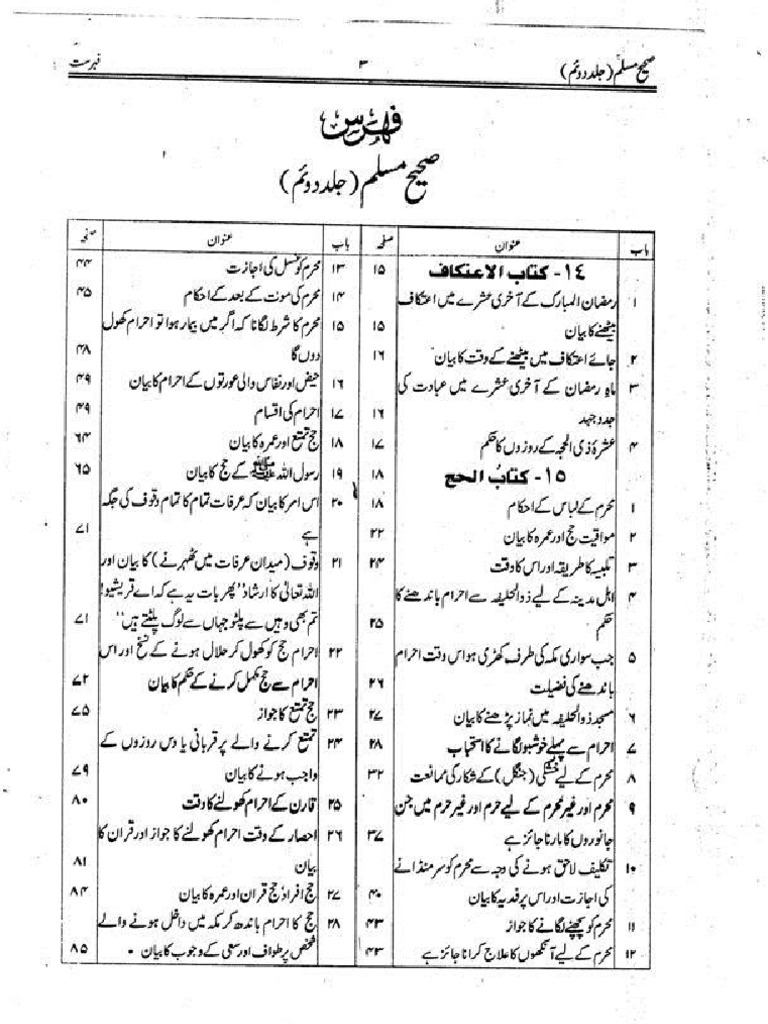 صحیح مسلم (جلد دوئم) ۳ فہرست
فہرس
صحیح مسلم (جلد دوئم)
باب عنوان صفحہ
۱٤- کتاب الاعتکاف ۱۵
۱ رمضان المبارک کے آخری عشرے میں اعتکاف
بیٹھنے کا بیان ۱۵
۲ جائے اعتکاف میں بیٹھنے کے وقت کا بیان ۱۶
۳ ماہِ رمضان کے آخری عشرے میں عبادت کی
جدوجہد ۱۶
۴ عشرۂ ذی الحجہ کے روزوں کا حکم ۱۷
۱۵- کتابُ الحج ۱۸
۱ محرم کے لباس کے احکام ۱۸
۲ مواقیت حج اور عمرہ کا بیان ۲۲
۳ تلبیہ کا طریقہ اور اس کا وقت ۲۴
۴ اہل مدینہ کے لیے ذوالحلیفہ سے احرام باندھنے کا
حکم ۲۵
۵ جب سواری مکہ کی طرف کھڑی ہو اس وقت احرام
باندھنے کی فضیلت ۲۶
۶ مسجد ذوالحلیفہ میں نماز پڑھنے کا بیان ۲۷
۷ احرام سے پہلے خوشبو لگانے کا استحباب ۲۸
۸ محرم کے لیے خشکی (جنگل) کے شکار کی ممانعت ۳۲
۹ محرم اور غیر محرم کے لیے حرم اور غیر حرم میں جن
جانوروں کا مارنا جائز ہے ۳۷
۱۰ تکلیف لاحق ہونے کی وجہ سے محرم کو سر منڈانے
کی اجازت اور اس پر فدیہ کا بیان ۴۰
۱۱ محرم کو پچھنے لگانے کا جواز ۴۳
۱۲ محرم کے لیے آنکھوں کا علاج کرانا جائز ہے ۴۳
باب عنوان صفحہ
۱۳ محرم کو غسل کی اجازت ۴۴
۱۴ محرم کی موت کے بعد کے احکام ۴۵
۱۵ محرم کا شرط لگانا کہ اگر میں بیمار ہوا تو احرام کھول
دوں گا ۴۸
۱۶ حیض اور نفاس والی عورتوں کے احرام کا بیان ۴۹
۱۷ احرام کی اقسام ۴۹
۱۸ حج تمتع اور عمرہ کا بیان ۶۴
۱۹ رسول اللہ ﷺ کے حج کا بیان ۶۵
۲۰ اس امر کا بیان کہ عرفات تمام کا تمام وقوف کی جگہ
ہے ۷۱
۲۱ وقوف (میدان عرفات میں ٹھہرنے) کا بیان اور
اللہ تعالیٰ کا ارشاد ”پھر بات یہ ہے کہ اے قریشیو!
تم بھی وہیں سے پلٹو جہاں سے لوگ پلٹتے ہیں“ ۷۱
۲۲ احرام حج کو کھول کر حلال ہونے کے نسخ اور اس
احرام سے حج مکمل کرنے کے حکم کا بیان ۷۲
۲۳ حج تمتع کا جواز ۷۵
۲۴ تمتع کرنے والے پر قربانی یا دس روزوں کے
واجب ہونے کا بیان ۷۹
۲۵ قارن کے احرام کھولنے کا وقت ۸۰
۲۶ احصار کے وقت احرام کھولنے کا جواز اور قران کا
بیان ۸۱
۲۷ حج افراد حج قران اور عمرہ کا بیان ۸۴
۲۸ حج کا احرام باندھ کر مکہ میں داخل ہونے والے
شخص پر طواف اور سعی کے وجوب کا بیان ۸۵